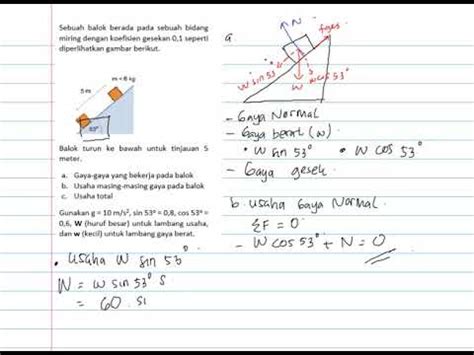 Sebuah balok berada pada sebuah bidang
miring dengan koefisien gesekan 0,1 seperti
diperlihatkan gambar berikut.
m = 6 kg
5 m
53°
Balok turun ke bawah untuk tinjauan 5
meter.
a. Gaya-gaya yang bekerja pada balok
b. Usaha masing-masing gaya pada balok
c. Usaha total
Gunakan g = 10 m/s², sin 53° = 0,8, cos 53° =
0,6, W (huruf besar) untuk lambang usaha,
dan w (kecil) untuk lambang gaya berat.
• Usaha W sin 53°
W = w sin 53° s
= 60 . si
a.
N
fges
W sin 53
W
W cos 53°
- Gaya Normal
- Gaya berat (w)
• W sin 53° • W cos 53°
- Gaya gesek
b. Usaha Gaya Normal.
ΣF = 0
- W cos 53° + N = 0